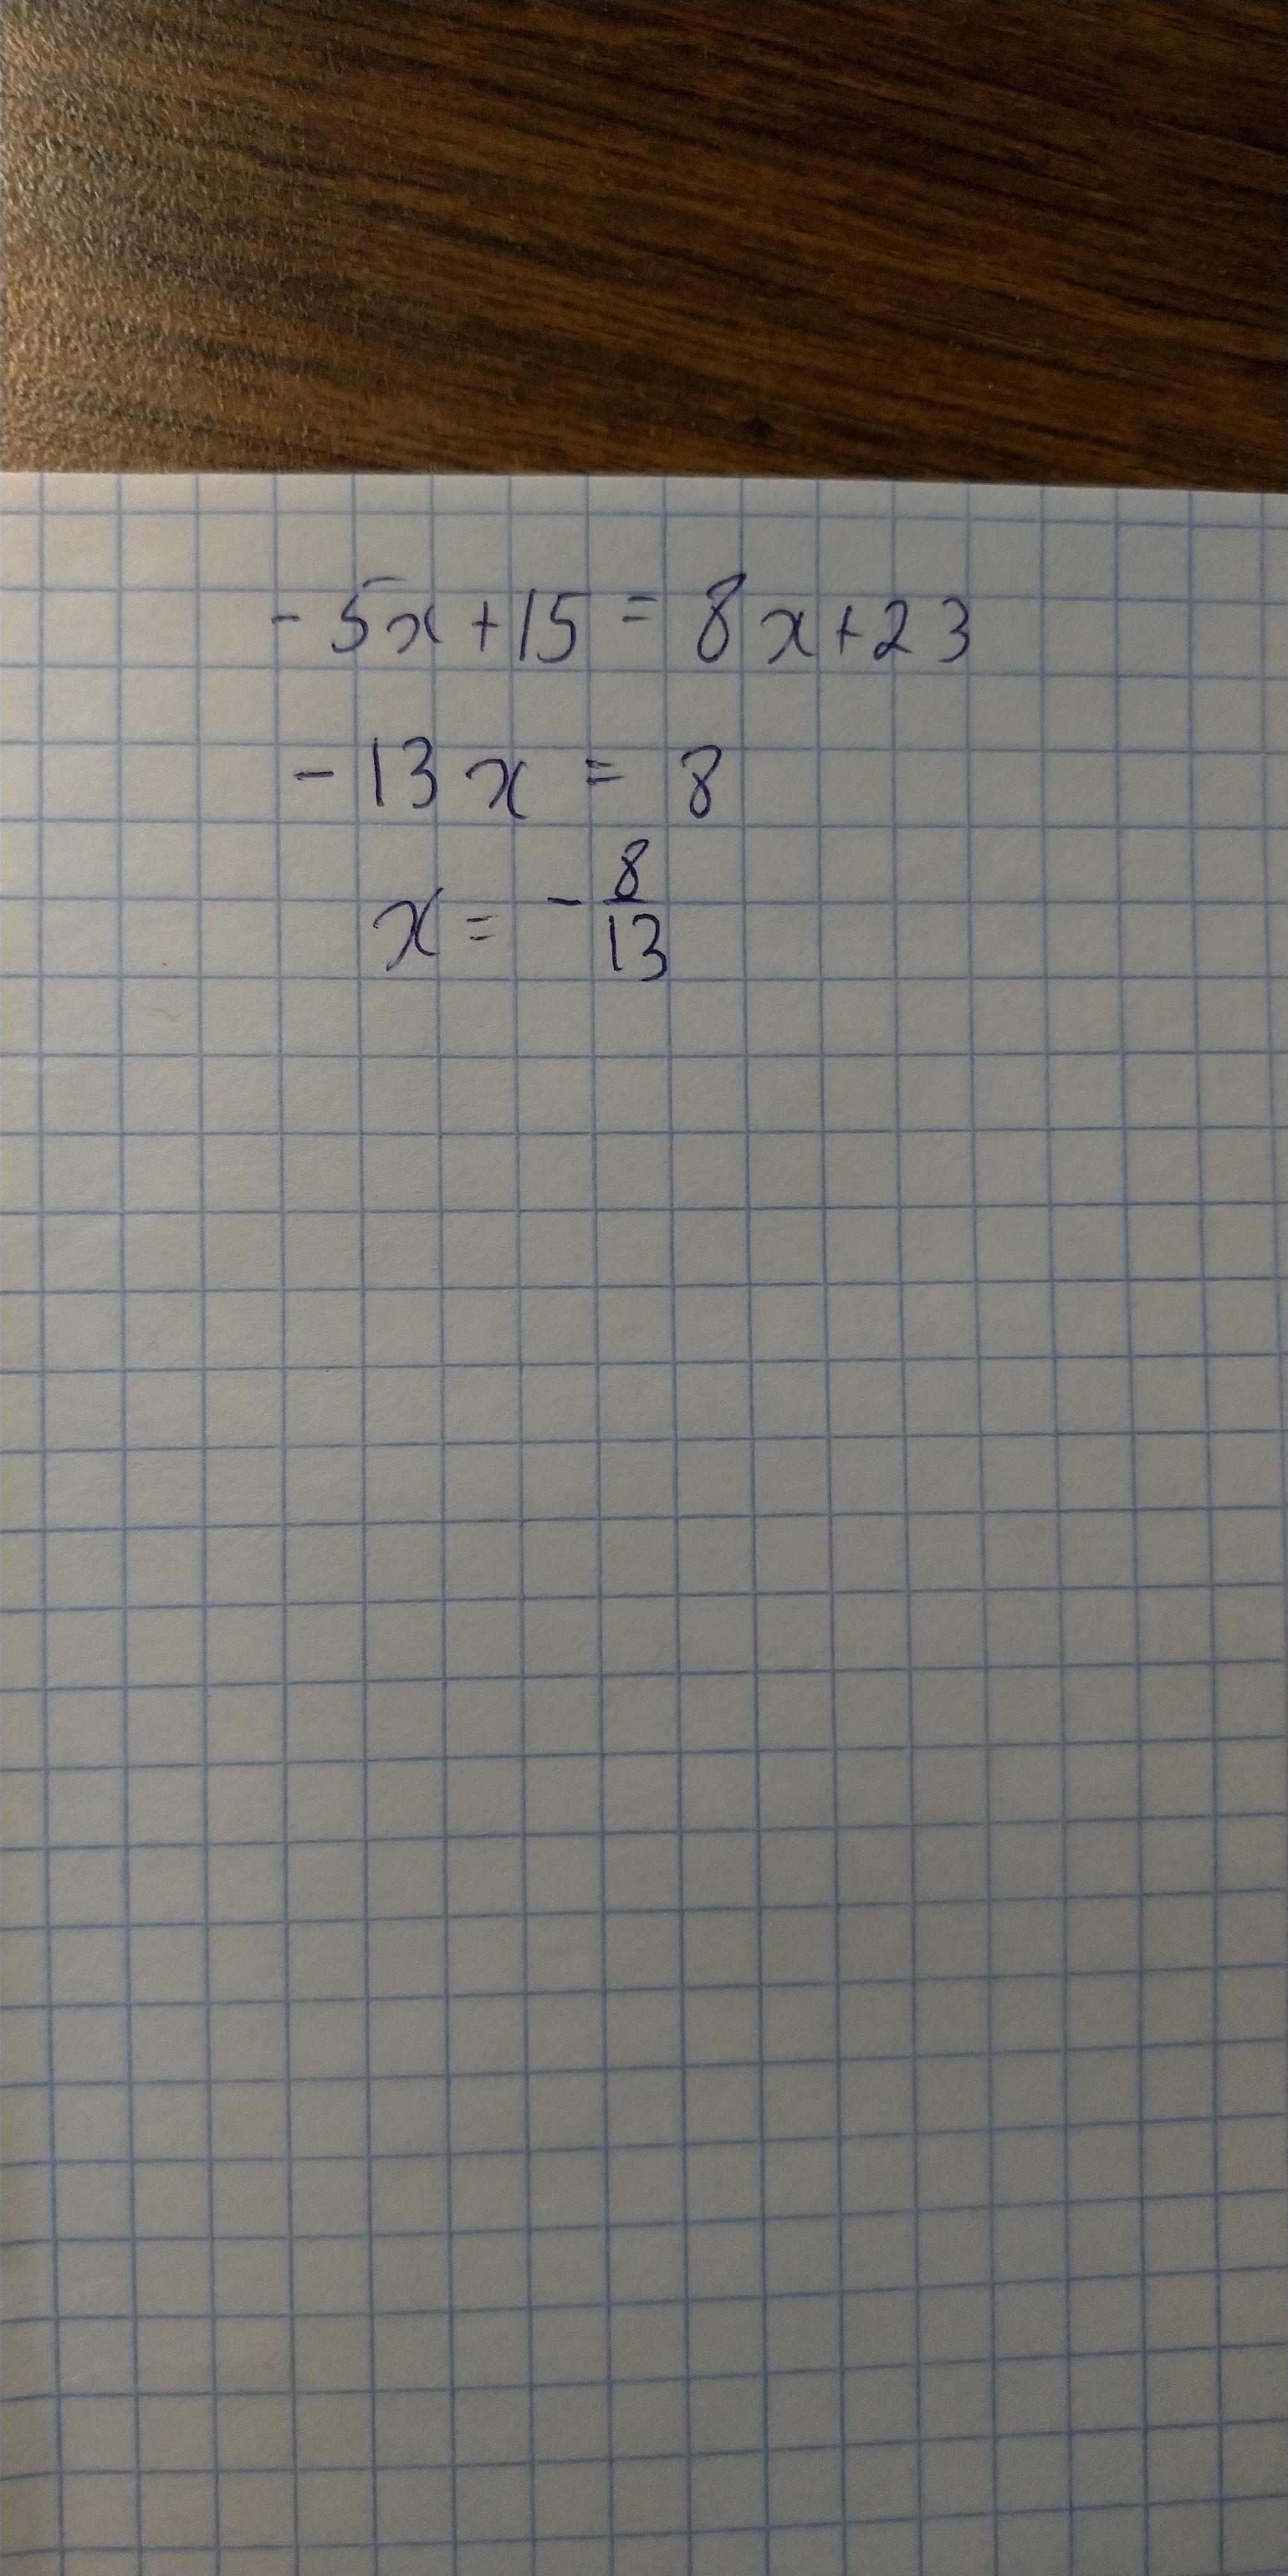 -5x+15=8x+23
-13x=8
x=-8/13